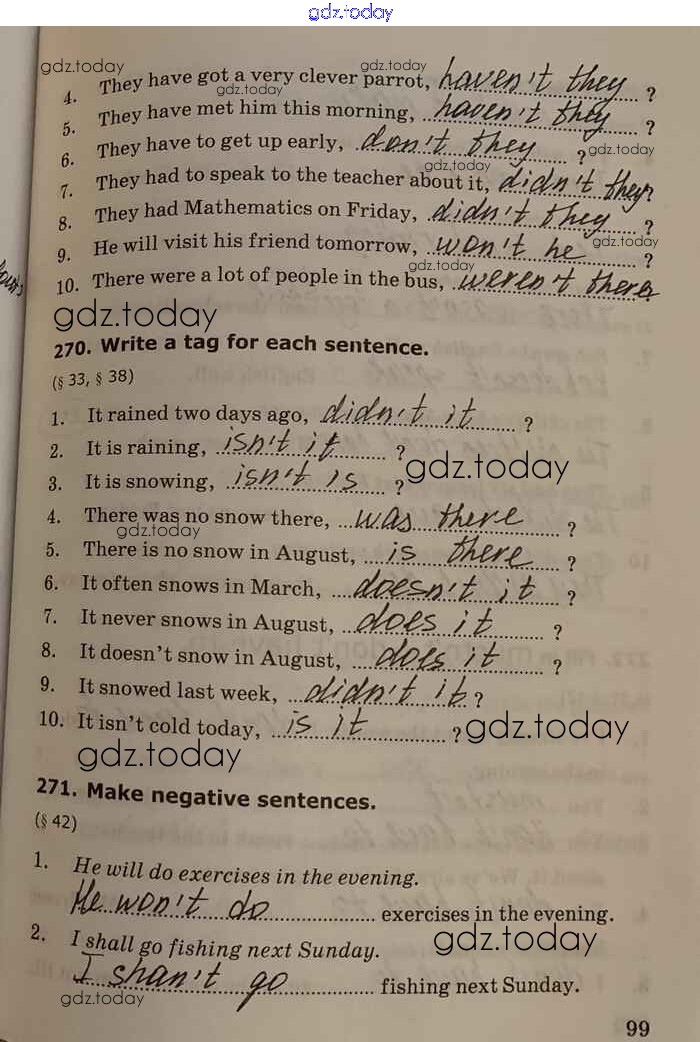 gdz.today
gdz.today gdz.today
4. They have got a very clever parrot, haven't they ?
gdz.today
5. They have met him this morning, haven't they ?
6. They have to get up early, don't they ?
gdz.today
gdz.today
7. They had to speak to the teacher about it, didn't they?
8. They had Mathematics on Friday, didn't they ?
9. He will visit his friend tomorrow, won't he ?
gdz.today
gdz.today
10. There were a lot of people in the bus, weren't there?
gdz.today
270. Write a tag for each sentence.
(§ 33, § 38)
1. It rained two days ago, didn't it ?
2. It is raining, isn't it ?
gdz.today
3. It is snowing, isn't is ?
4. There was no snow there, was there ?
gdz.today
5. There is no snow in August, is there ?
6. It often snows in March, doesn't it ?
7. It never snows in August, does it ?
8. It doesn't snow in August, does it ?
9. It snowed last week, didn't it ?
10. It isn't cold today, is it ?
gdz.today
gdz.today
271. Make negative sentences.
(§ 42)
1. He will do exercises in the evening.
He won't do exercises in the evening.
2. I shall go fishing next Sunday.
gdz.today
I shan't go fishing next Sunday.
gdz.today
99